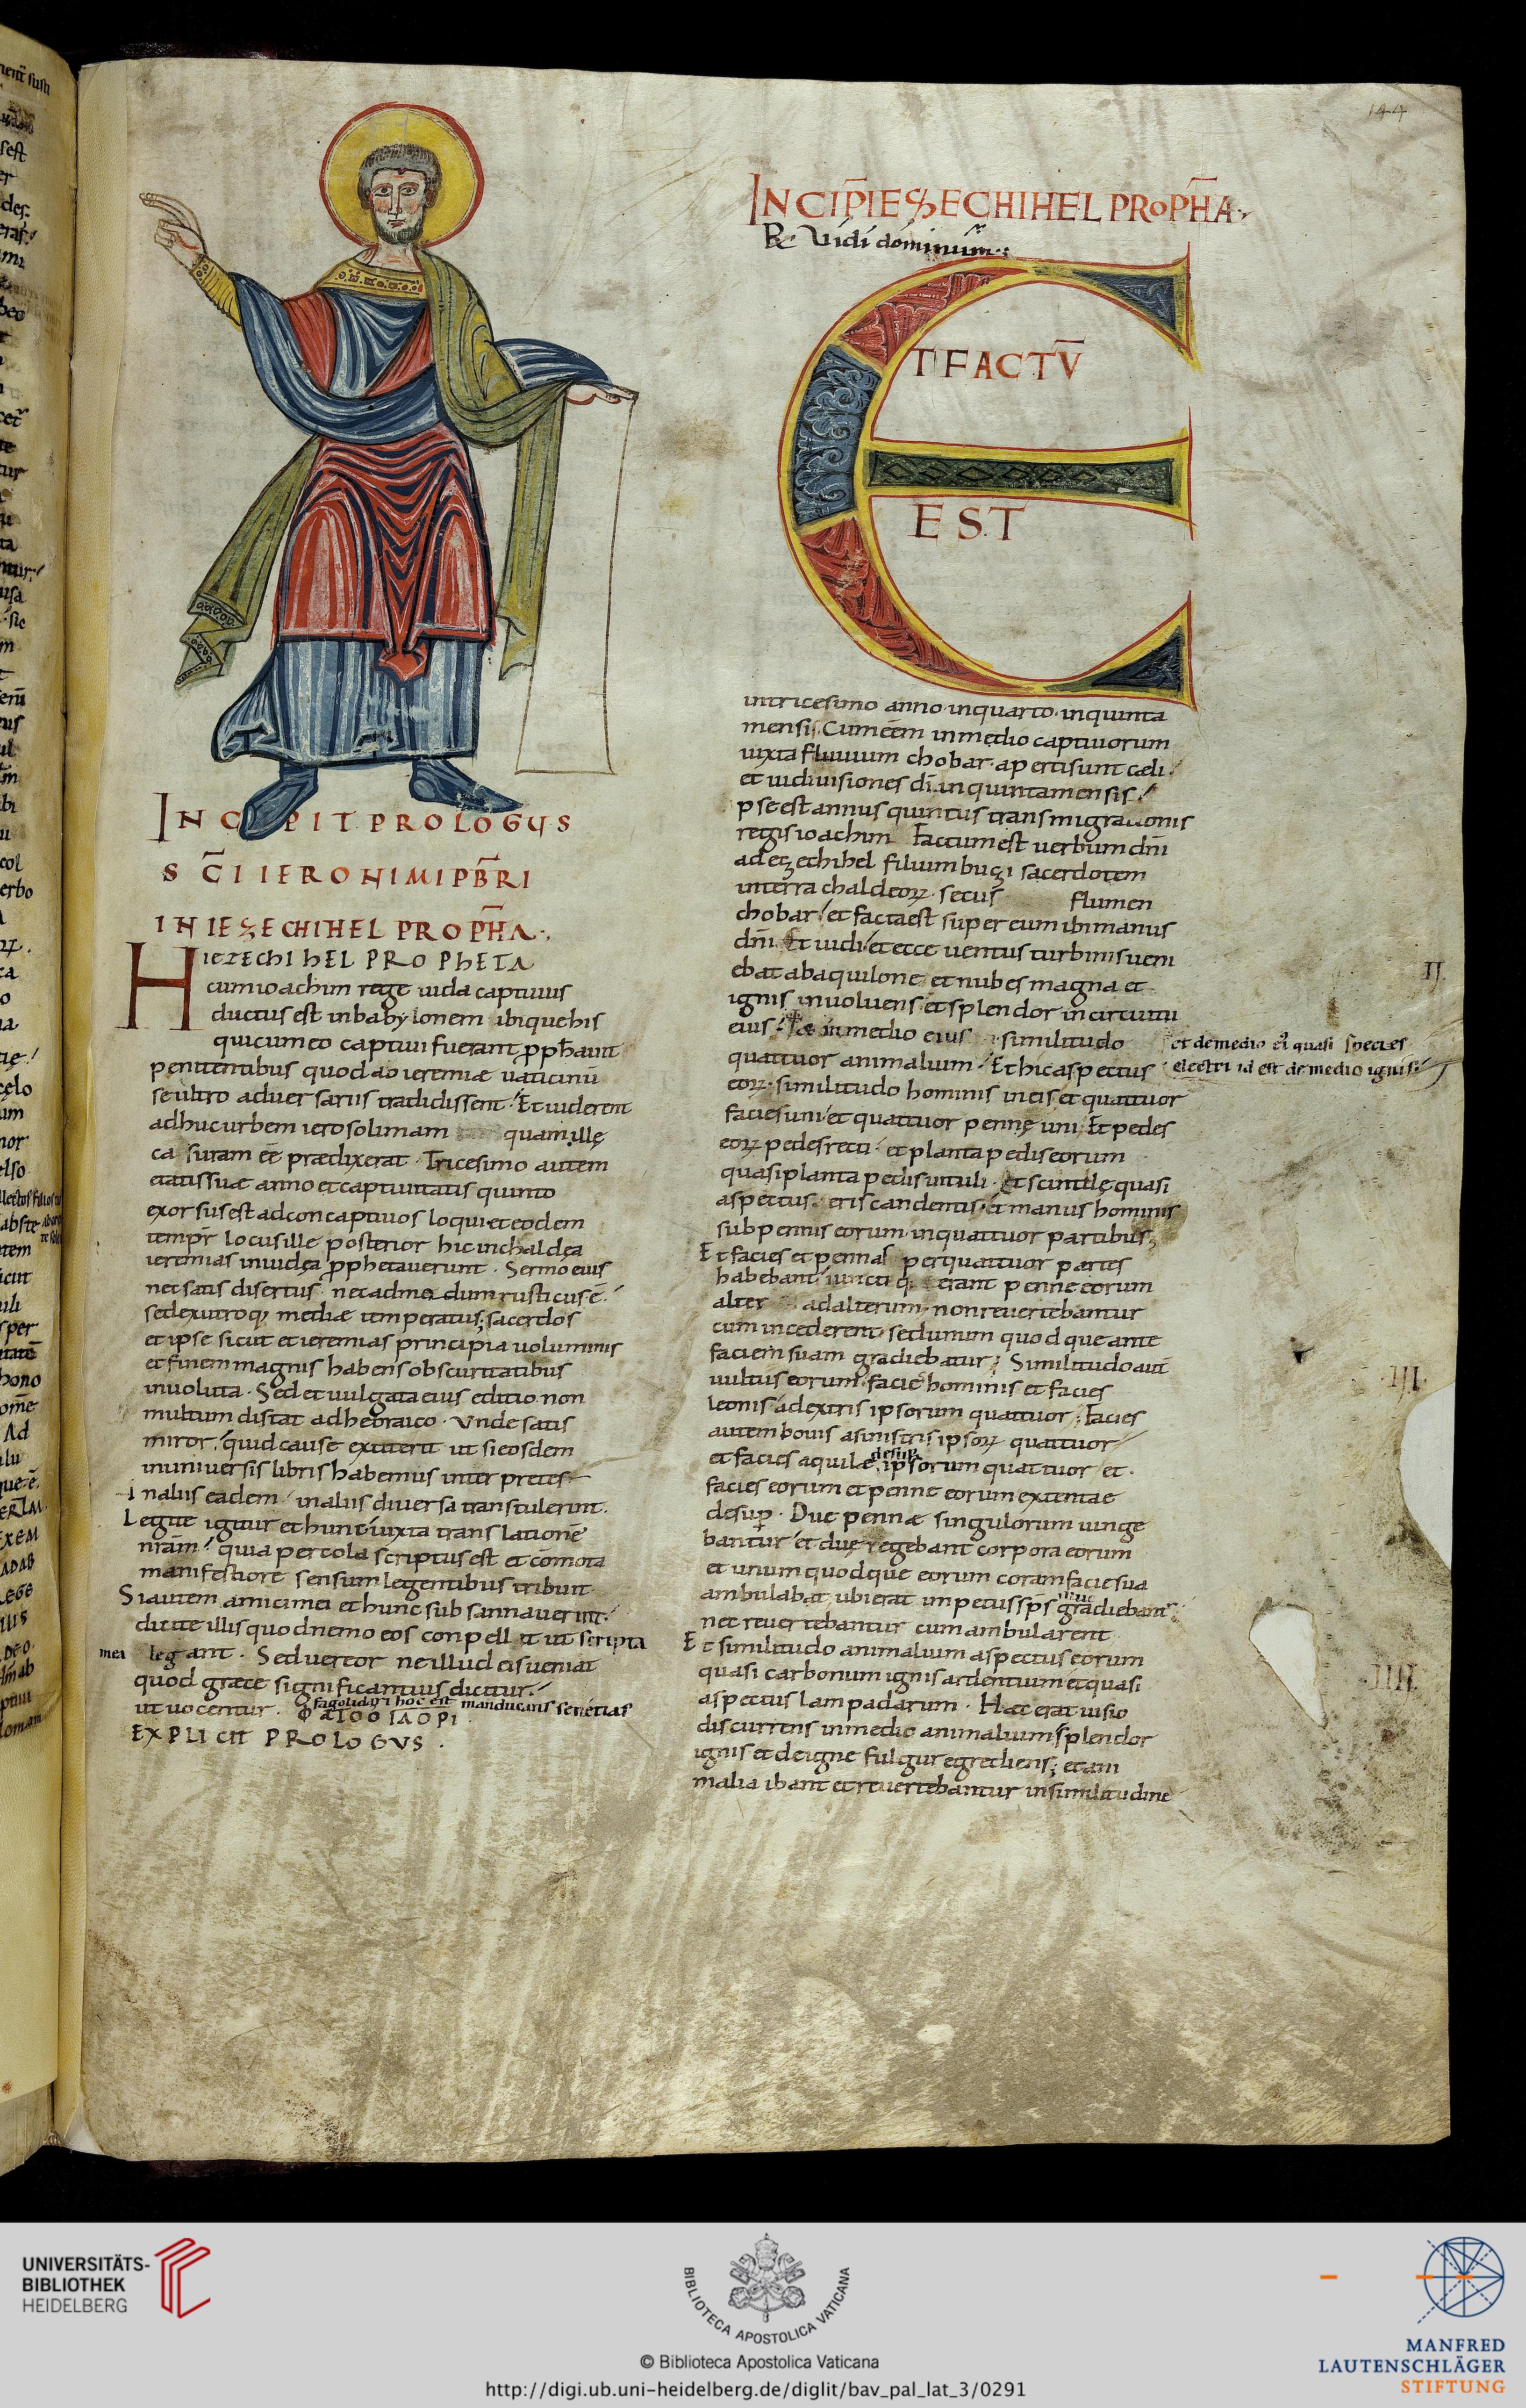 144
INCIPIT PROLOGUS
SC̄I IERONIMI PB̄RI
IN IEZECHIHEL PROPH̄A·,
HIEZECHIHEL PROPHETA
cum ioachim rege iuda captiuus
ductus est in babylonem ibique his
qui cum eo captiui fuerant, pphauit
penitentibus quod ad ieremiæ uaticiniū
se ultro aduersariis tradidissent. Et uiderent
adhuc urbem ierosolimam quam ille
casuram eē prædixerat. Tricesimo autem
etatis suæ anno et captiuitatis quinto
exorsus est ad concaptiuos loqui et eodem
tempr̄ locus ille posterior hic in chaldęa
ieremias in iudęa pphetauerunt. Sermo eius
nec satis disertus nec admodum rusticus ē.
sed ex utroq; mediæ temperatus; sacerdos
et ipse sicut et ieremias principia uoluminis
et finem magnis habens obscuritatibus
inuoluta. Sed et uulgata eius editio non
multum distat ad hebraico. Unde satis
miror, quid cause extiterit ut si eosdem
in uniuersis libris habemus interpretes
in aliis eadem, in aliis diuersa transtulerint.
Legite igitur et hunc iuxta translationē
nr̄am, quia per cola scriptus est et comota
manifestiore sensum legentibus tribuit
Si autem amici mei et hunc subsannauerint.
dicite illis quod nemo eos conpellit ut scripta
mea legant. Sed uereor ne illud eis ueniat
quod grece significantius dicitur.
fagolidari hoc est manducans senetias
ut uocentur. ΦΑΓΟΟ ΙΑΟΡΙ
EXPLICIT PROLOGVS.
INCIP̄ IEZECHIHEL PROPH̄A·
R Uidi dominum.
ET FACTV̄
EST
in tricesimo anno in quarto in quinta
mensis. Cum eēm in medio captiuorum
iuxta fluuium chobar aperti sunt cæli.
et uidi uisiones dī. in quinta mensis.
pse est annus quintus transmigrationis
regis ioachim Factum est uerbum dn̄i
ad ezechihel filium buzi sacerdotem
in terra chaldeorum secus flumen
chobar. et facta est super eum ibi manus
dn̄i. Et uidi et ecce uentus turbinis ueni
ebat ab aquilone et nubes magna et
ignis inuoluens et splendor in circuitu
eius. in medio eius similitudo
et de medio eī quasi species
electri id est de medio ignis.
quattuor animalium. Et hic aspectus
eorum similitudo hominis in eis et quattuor
facies uni et quattuor penne uni. Et pedes
eorum pedes recti. et planta pedis eorum
quasi planta pedis uituli. Et scintilę quasi
aspectus eris candentis. et manus hominis
sub pennis eorum in quattuor partibus;
Et facies et pennas per quattuor partes
habebant iuncteq; erant penne eorum
alter ad alterum. non reuertebantur
cum incederent sed unumquodque ante
faciem suam gradiebatur; Similitudo aut̄
uultus eorum facie hominis et facies
leonis a dextris ipsorum quattuor. Facies
autem bouis a sinistris ipsorum quattuor
desup
et facies aquile ipsorum quattuor et.
facies eorum et penne eorum extentae
desup. Due pennæ singulorum iunge
bantur et duę tegebant corpora eorum
et unumquodque eorum coram facie sua
ambulabat ubi erat impetus sps illuc gradiebant.
nec reuertebantur cum ambularent
Et similitudo animalium aspectus eorum
quasi carbonum ignis ardentium et quasi
aspectus lampadarum. Hæc erat uisio
discurrens in medio animalium splendor
ignis et de igne fulgur egrediens; et ani
malia ibant et reuertebantur in similitudine
II.
III.
IIII.
UNIVERSITÄTS-
BIBLIOTHEK
HEIDELBERG
BIBLIOTECA APOSTOLICA VATICANA
© Biblioteca Apostolica Vaticana
http://digi.ub.uni-heidelberg.de/diglit/bav_pal_lat_3/0291
MANFRED
LAUTENSCHLÄGER
STIFTUNG